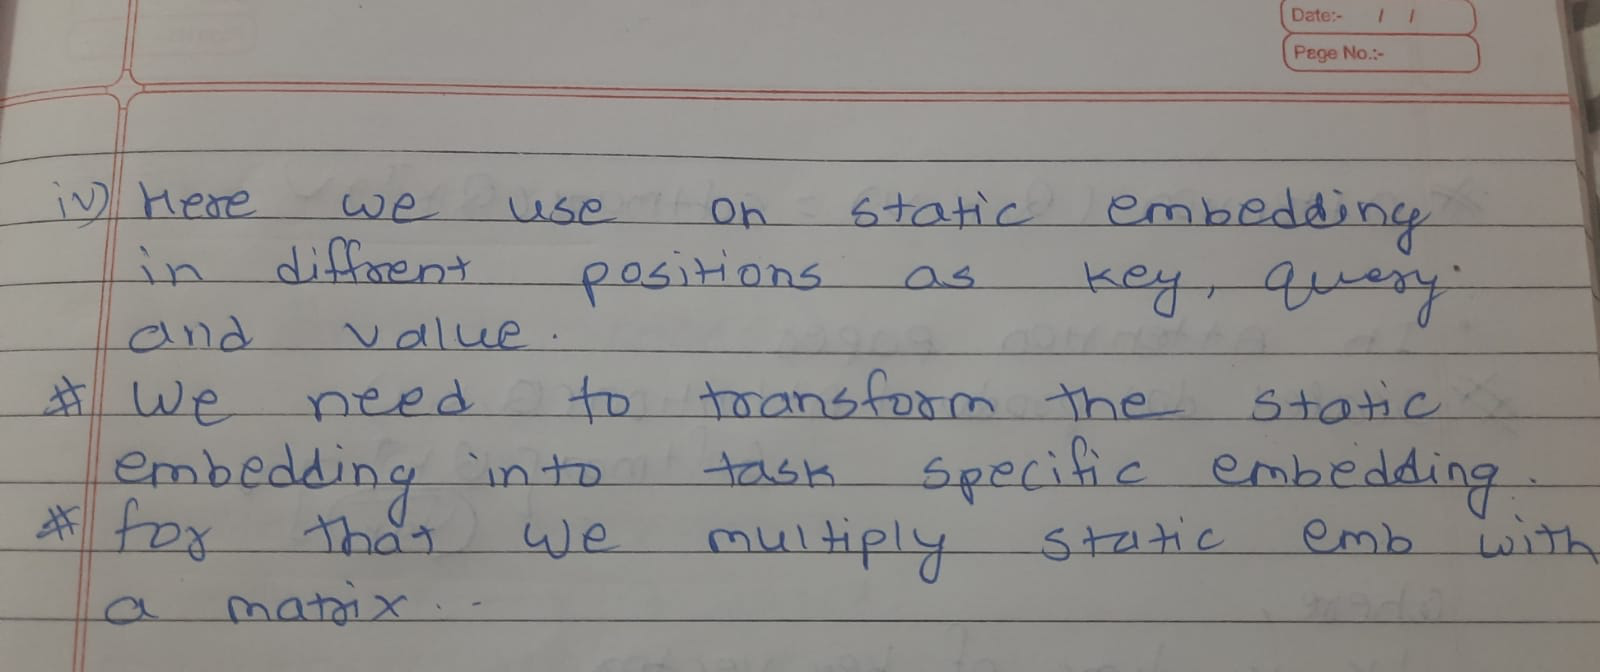 Date:- / /
Page No.:-
iv) Here we use on static embedding
in diffrent positions as key, query
and value.
# We need to transform the static
embedding into task specific embedding.
# for that we multiply static emb with
a matrix..-